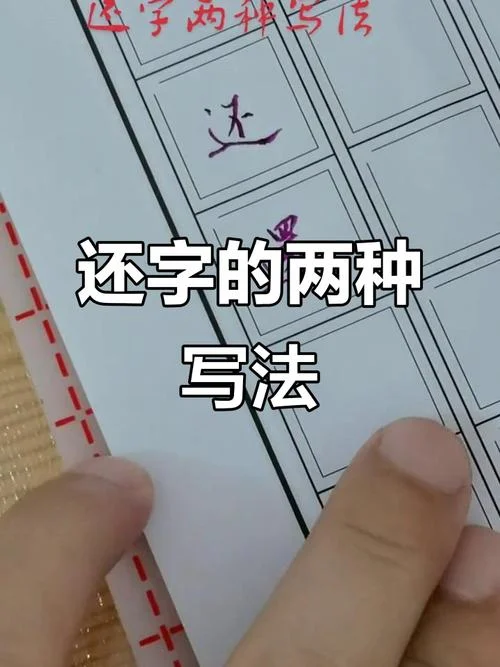 还字两种写法
还
还字的两种
写法